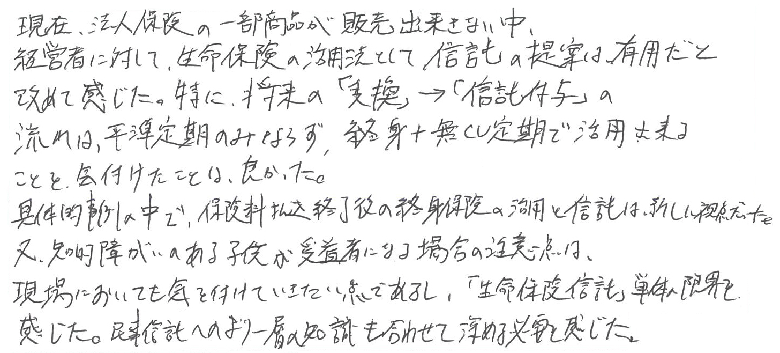 現在、法人保険の一部商品が販売出来ない中、
経営者に対して、生命保険の活用法として信託の提案は、有用だと
改めて感じた。特に、将来の「変換」→「信託付与」の
流れは、平準定期のみならず、終身+無くし定期で活用出来る
ことを、気付けたことは、良かった。
具体的事例の中で、保険料払込終了後の終身保険の活用と信託は、新しい視点だった。
又、知的障がいのある子供が受益者になる場合の注意点は、
現場においても気を付けていきたい点であるし、「生命保険信託」単体の限界を
感じた。民事信託へのより一層の知識も合わせて深める必要を感じた。